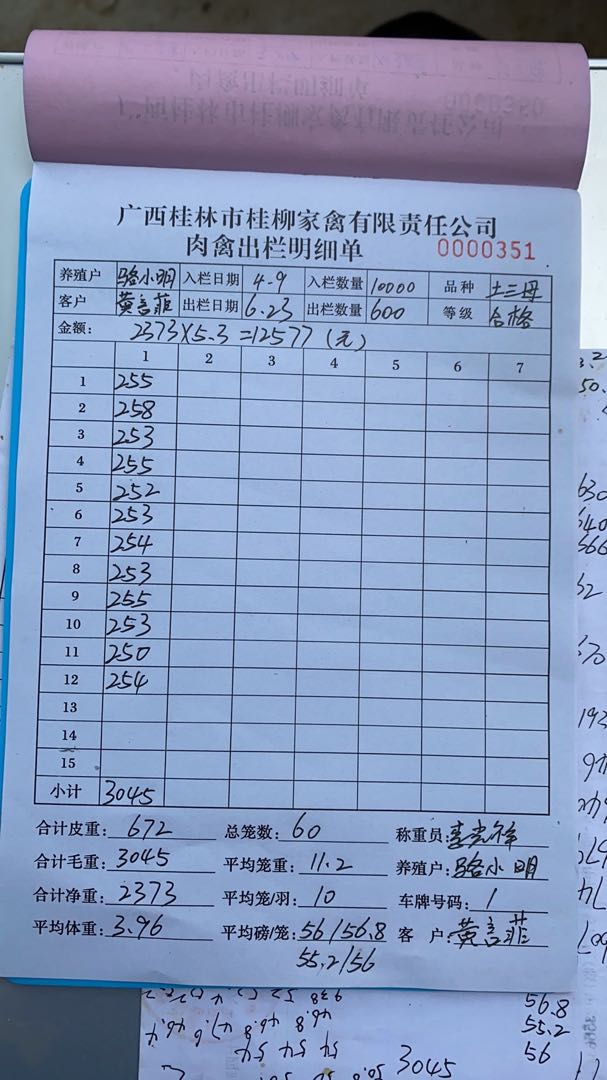 广西桂林市桂柳家禽有限责任公司
肉禽出栏明细单 0000351
养殖户 骆小明 入栏日期 4.9 入栏数量 10000 品种 土三母
客户 黄言菲 出栏日期 6.23 出栏数量 600 等级 合格
金额: 2373×5.3=12577(元)
1 2 3 4 5 6 7
1 255
2 258
3 253
4 255
5 252
6 253
7 254
8 253
9 255
10 253
11 250
12 254
13
14
15
小计 3045
合计皮重: 672 总笼数: 60 称重员:
合计毛重: 3045 平均笼重: 11.2 养殖户: 骆小明
合计净重: 2373 平均笼/羽: 10 车牌号码: 1
平均体重: 3.96 平均磅/笼: 56/56.8 客户: 黄言菲
55.2/56
56.8
55.2
56
3045